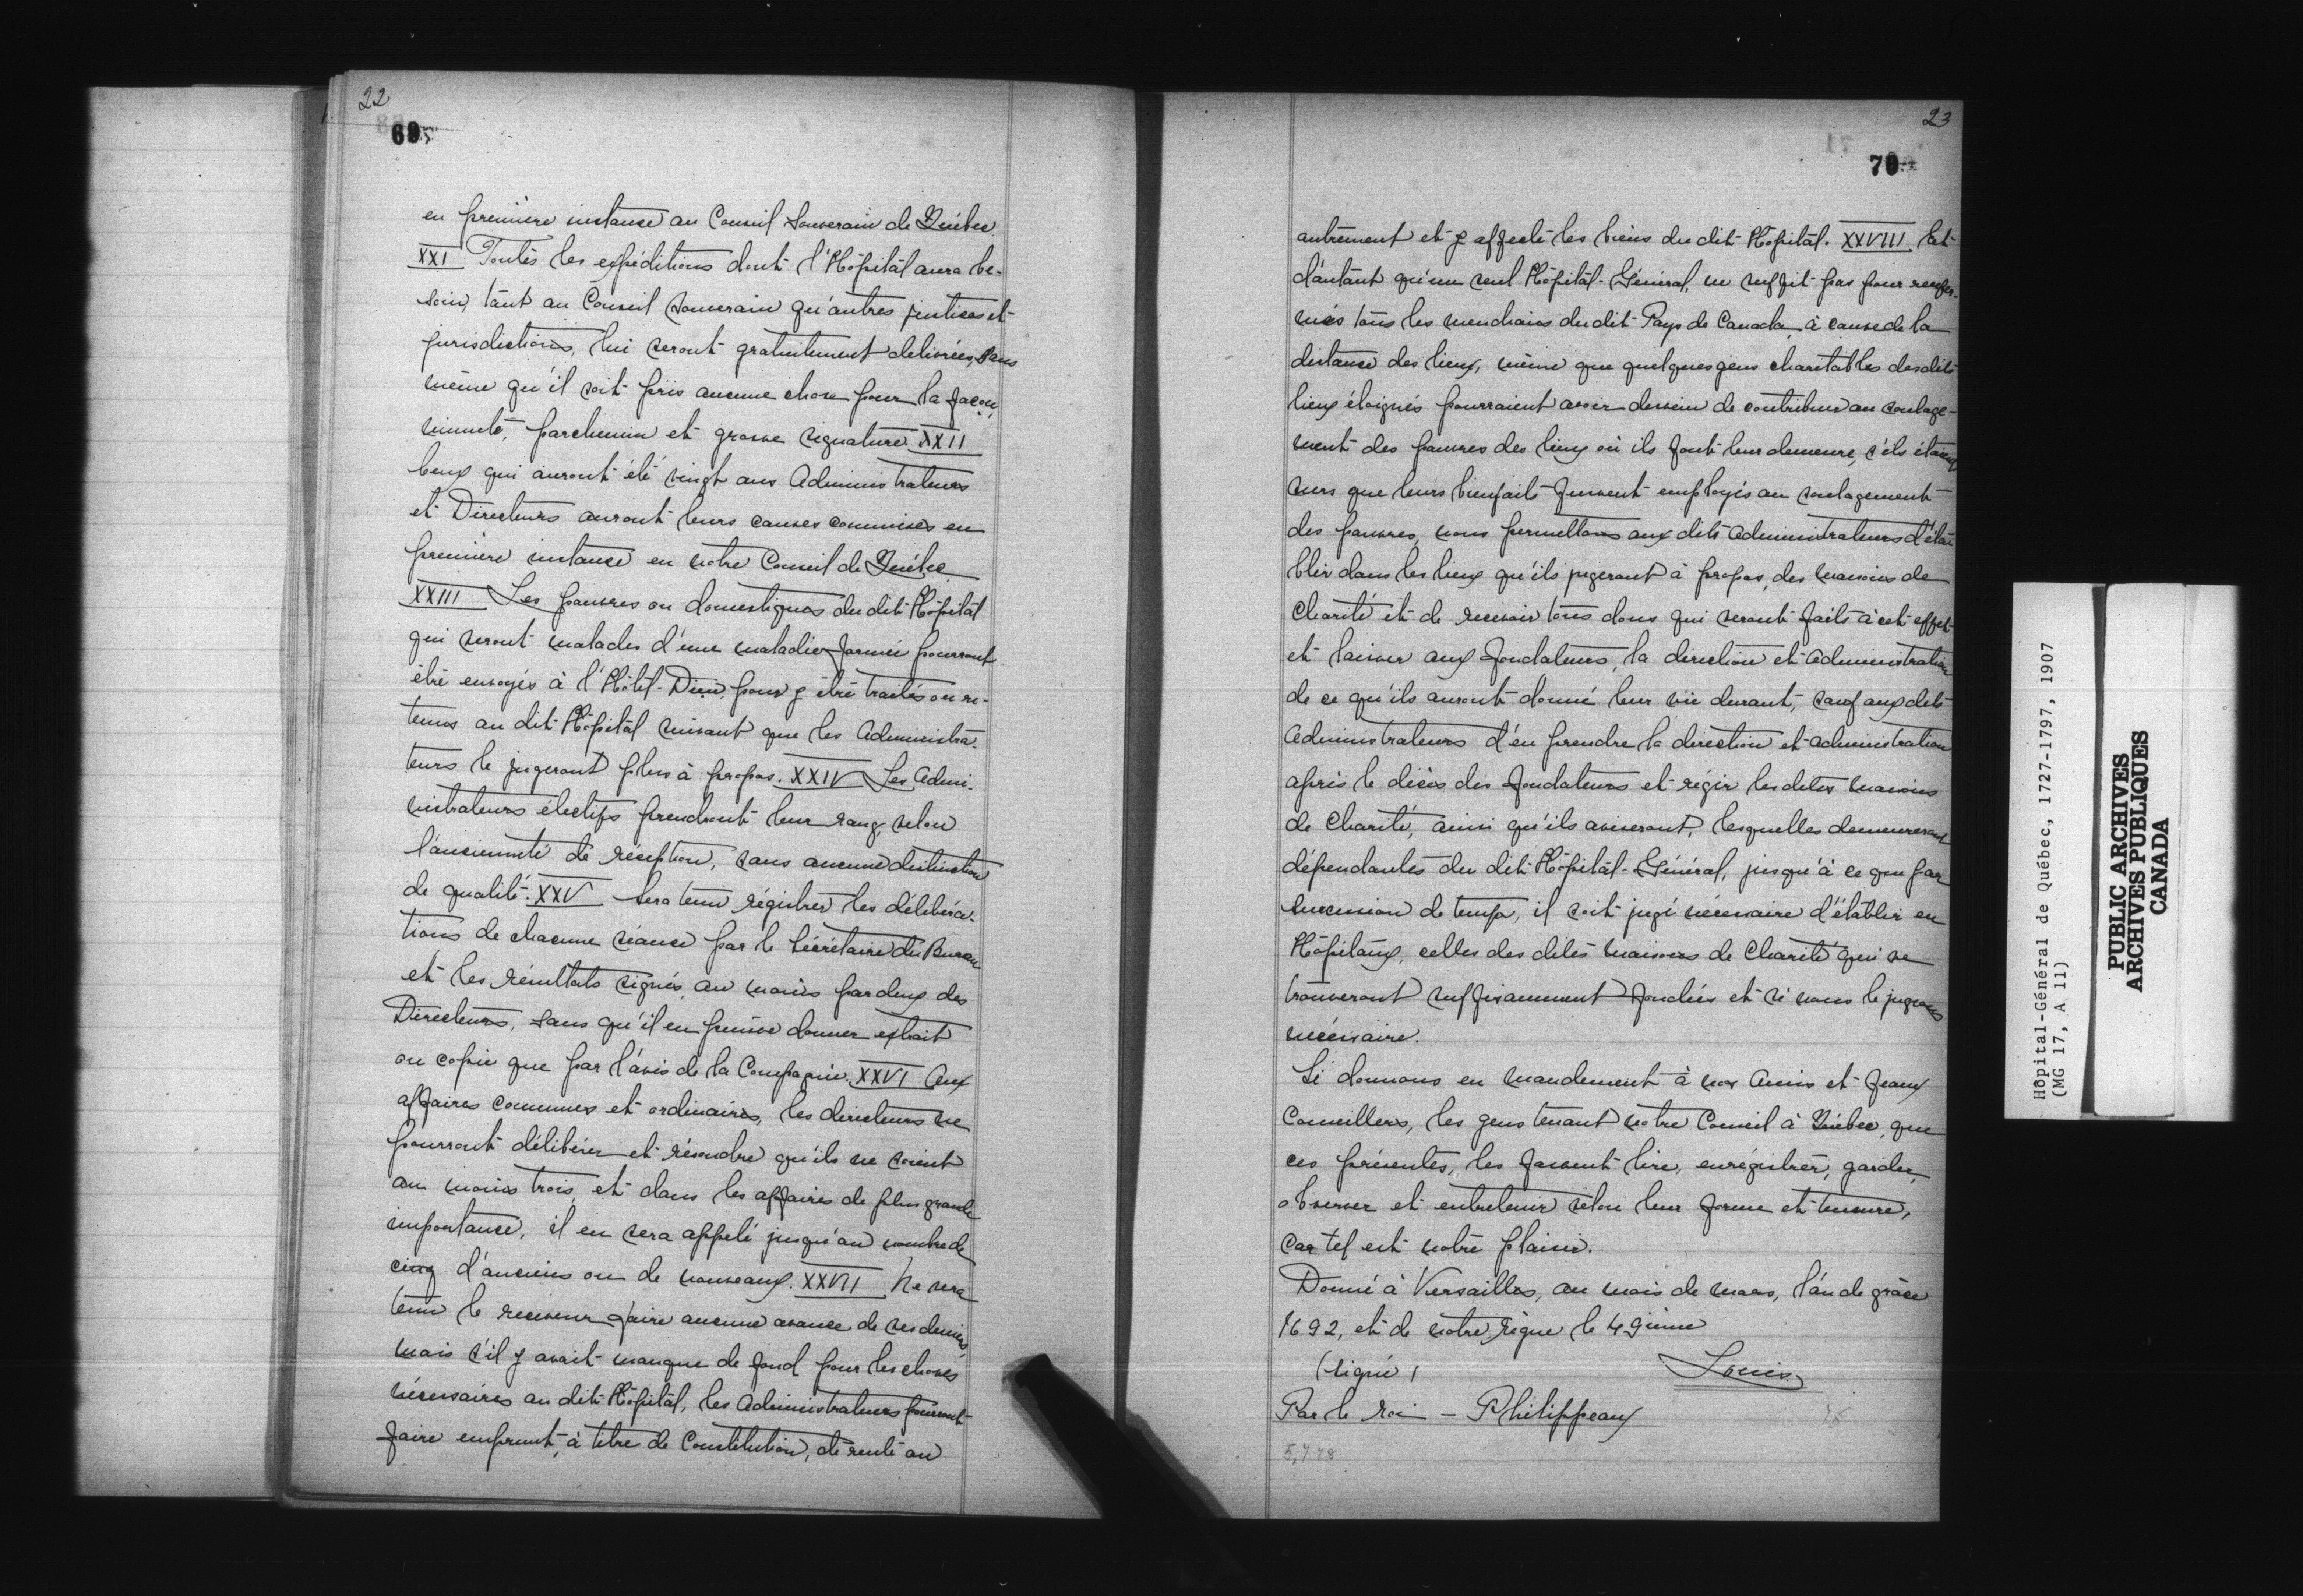 22
69
en première instance au Conseil Souverain de Québec
XXI Toutes les expéditions dont l'Hôpital aura be-
soin, tant au Conseil souverain qu'autres justices et
jurisdictions, lui seront gratuitement délivrées, sans
même qu'il soit pris aucune chose pour la façon,
minute, parchemin et grosse signature XXII
Ceux qui auront été vingt ans Administrateurs
et Directeurs auront leurs causes commises en
première instance en notre Conseil de Québec
XXIII Les pauvres ou domestiques du dit Hôpital
qui seront malades d'une maladie formée pourront
être envoyés à l'Hôtel-Dieu, pour y être traités ou re-
tenus au dit Hôpital suivant que les Administra-
teurs le jugeront plus à propos. XXIV Les Admi-
nistrateurs électifs prendront leur rang, selon
l'ancienneté de réception, sans aucune distinction
de qualité. XXV Sera tenu régistrer les délibéra-
tions de chacune séance par le Sécrétaire du Bureau
et les résultats signés au moins par deux des
Directeurs, sans qu'il en puisse donner extrait
ou copie que par l'avis de la Compagnie. XXVI Aux
affaires communes et ordinaires, les directeurs ne
pourront délibérer et résoudre qu'ils ne soient
au moins trois, et dans les affaires de plus grande
importance, il en sera appelé jusqu'au nombre de
cinq d'anciens ou de nouveaux. XXVII Ne sera
tenu le receveur faire aucune avance de ses deniers,
mais s'il y avait manque de fond pour les choses
nécessaires au dit Hôpital, les Administrateurs pourront
faire emprunt, à titre de Constitution, de rente ou
23
70
autrement et y affecté les biens du dit Hôpital. XXVIII Et
d'autant qu'un seul Hôpital-Général, ne suffit pas pour renfer-
més tous les mendians du dit Pays de Canada, à cause de la
distance des lieux, même que quelques gens charitables des dits
lieux éloignés pourraient avoir dessein de contribuer au soulage-
ment des pauvres des lieux où ils font leur demeure, s'ils étaient
surs que leurs bienfaits fussent employés au soulagement
des pauvres, nous permettons aux dits Administrateurs d'éta-
blir dans les lieux qu'ils jugeront à propos, des maisons de
Charité et de recevoir tous dons qui seront faits à cet effet
et laisser aux fondateurs, la direction et administration
de ce qu'ils auront donné leur vie durant, sauf aux dits
Administrateurs d'en prendre la direction et administration
après le décès des fondateurs et régir les dites maisons
de Charité, ainsi qu'ils aviseront, lesquelles demeureront
dépendantes du dit Hôpital-Général, jusqu'à ce que par
succession de temps, il soit jugé nécessaire d'établir en
Hôpitaux, celles des dites maisons de Charité qui se
trouveront suffisamment fondées et si nous le jugeons
nécessaire.
Si donnons en mandement à nos Amis et feaux
Conseillers, les gens tenant notre Conseil à Québec, que
ces présentes, les fassent lire, enrégistrer, garder,
observer et entretenir selon leur forme et teneure,
Car tel est notre plaisir.
Donné à Versailles, au mois de mars, l'an de grâce
1692, et de notre règne le 49ième
(signé) Louis
Par le roi — Philippeaux
5,778
Hôpital-Général de Québec, 1727-1797, 1907
(MG 17, A 11)
PUBLIC ARCHIVES
ARCHIVES PUBLIQUES
CANADA